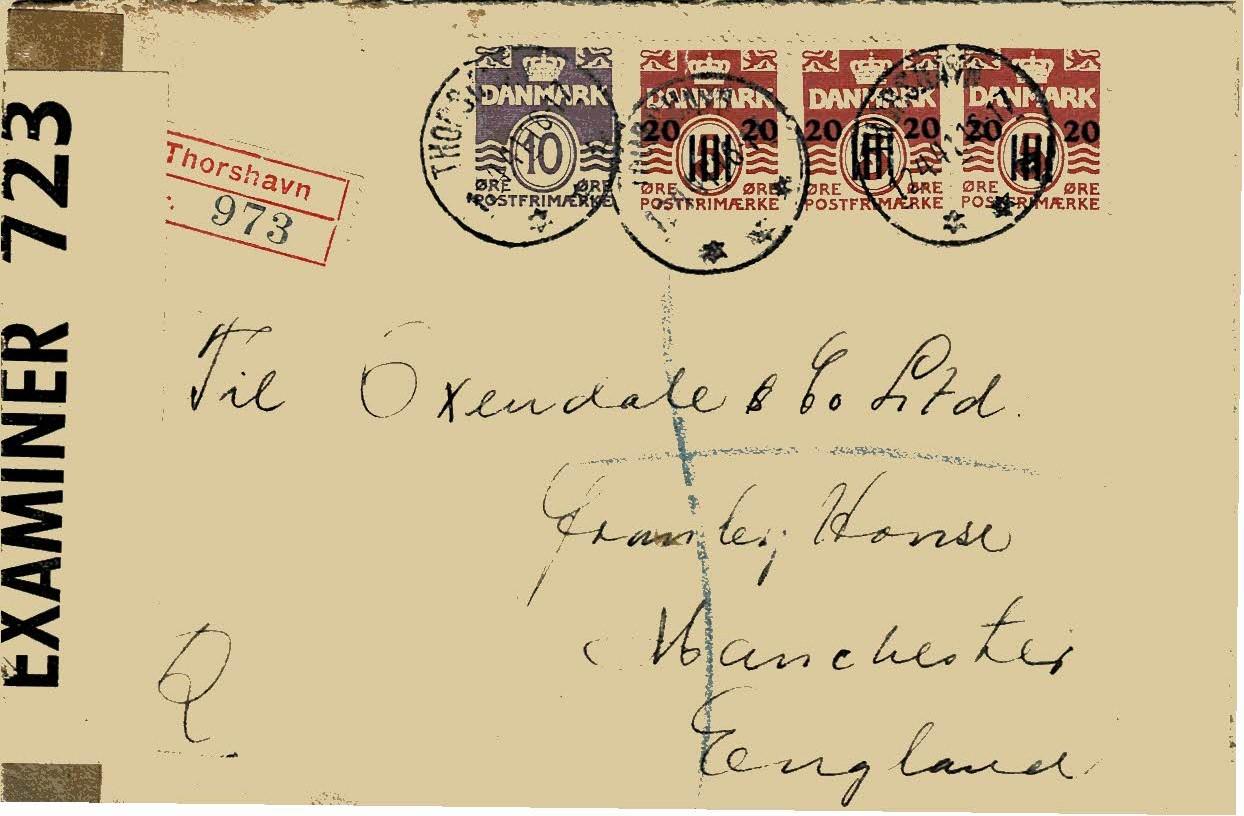 EXAMINER 723
Thorshavn
973
DANMARK
10
ØRE ØRE
POSTFRIMÆRKE
DANMARK
20 20
ØRE ØRE
POSTFRIMÆRKE
DANMARK
20 20
ØRE ØRE
POSTFRIMÆRKE
DANMARK
20 20
ØRE ØRE
POSTFRIMÆRKE
Til Oxendale & Co Ltd.
House
Manchester
England
R